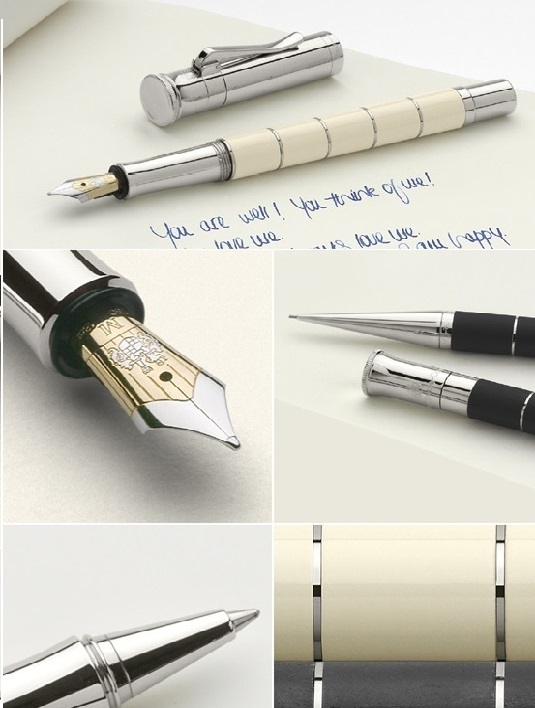 You are well! You think of me!
love me. love me. I am happy.
M